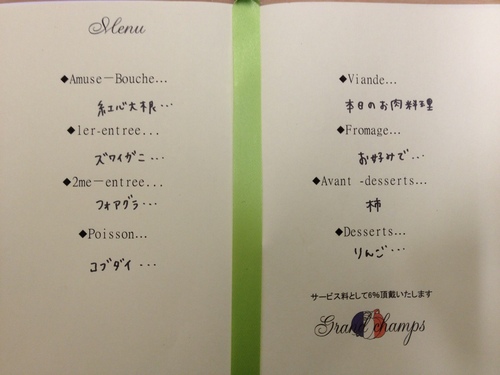 Menu
◆Amuse－Bouche...
紅心大根...
◆1er-entree...
ズワイガニ...
◆2me－entree...
フォアグラ...
◆Poisson...
コブダイ...
◆Viande...
本日のお肉料理
◆Fromage...
お好みで...
◆Avant -desserts...
柿
◆Desserts...
りんご...
サービス料として6%頂戴いたします
Grand champs